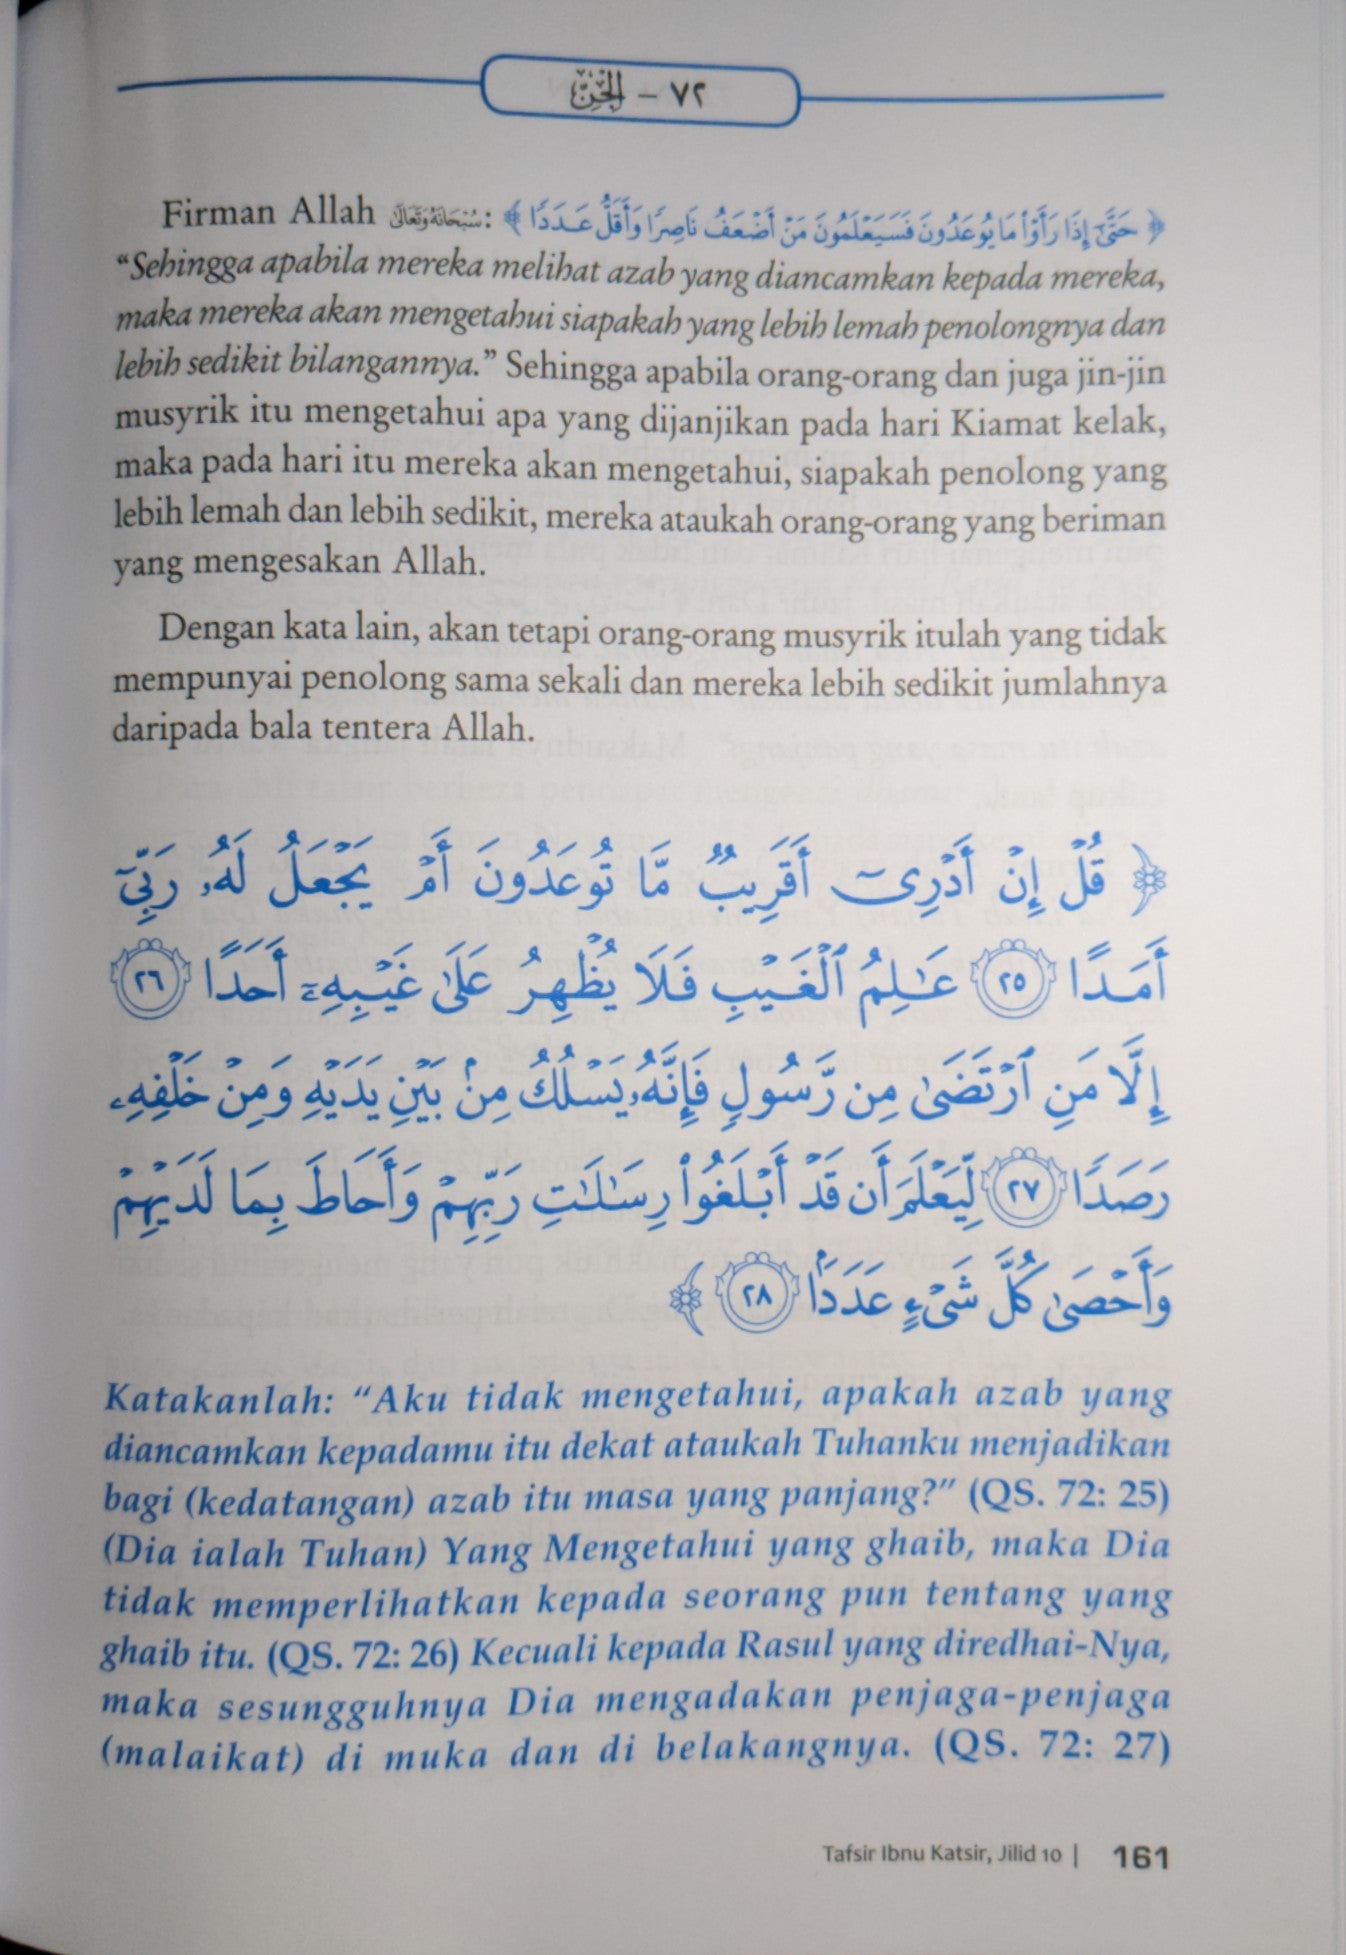 ٧٢ – الجن
Firman Allah سُبْحَانَهُ وَتَعَالَىٰ: ﴿ حَتَّىٰٓ إِذَا رَأَوْا۟ مَا يُوعَدُونَ فَسَيَعْلَمُونَ مَنْ أَضْعَفُ نَاصِرًا وَأَقَلُّ عَدَدًا ﴾
“Sehingga apabila mereka melihat azab yang diancamkan kepada mereka,
maka mereka akan mengetahui siapakah yang lebih lemah penolongnya dan
lebih sedikit bilangannya.” Sehingga apabila orang-orang dan juga jin-jin
musyrik itu mengetahui apa yang dijanjikan pada hari Kiamat kelak,
maka pada hari itu mereka akan mengetahui, siapakah penolong yang
lebih lemah dan lebih sedikit, mereka ataukah orang-orang yang beriman
yang mengesakan Allah.
Dengan kata lain, akan tetapi orang-orang musyrik itulah yang tidak
mempunyai penolong sama sekali dan mereka lebih sedikit jumlahnya
daripada bala tentera Allah.
﴿ قُلْ إِنْ أَدْرِىٓ أَقَرِيبٌ مَّا تُوعَدُونَ أَمْ يَجْعَلُ لَهُۥ رَبِّىٓ
أَمَدًا ٢٥ عَـٰلِمُ ٱلْغَيْبِ فَلَا يُظْهِرُ عَلَىٰ غَيْبِهِۦٓ أَحَدًا ٢٦
إِلَّا مَنِ ٱرْتَضَىٰ مِن رَّسُولٍ فَإِنَّهُۥ يَسْلُكُ مِنۢ بَيْنِ يَدَيْهِ وَمِنْ خَلْفِهِۦ
رَصَدًا ٢٧ لِّيَعْلَمَ أَن قَدْ أَبْلَغُوا۟ رِسَـٰلَـٰتِ رَبِّهِمْ وَأَحَاطَ بِمَا لَدَيْهِمْ
وَأَحْصَىٰ كُلَّ شَىْءٍ عَدَدًۢا ٢٨ ﴾
Katakanlah: “Aku tidak mengetahui, apakah azab yang
diancamkan kepadamu itu dekat ataukah Tuhanku menjadikan
bagi (kedatangan) azab itu masa yang panjang?” (QS. 72: 25)
(Dia ialah Tuhan) Yang Mengetahui yang ghaib, maka Dia
tidak memperlihatkan kepada seorang pun tentang yang
ghaib itu. (QS. 72: 26) Kecuali kepada Rasul yang diredhai-Nya,
maka sesungguhnya Dia mengadakan penjaga-penjaga
(malaikat) di muka dan di belakangnya. (QS. 72: 27)
Tafsir Ibnu Katsir, Jilid 10 | 161